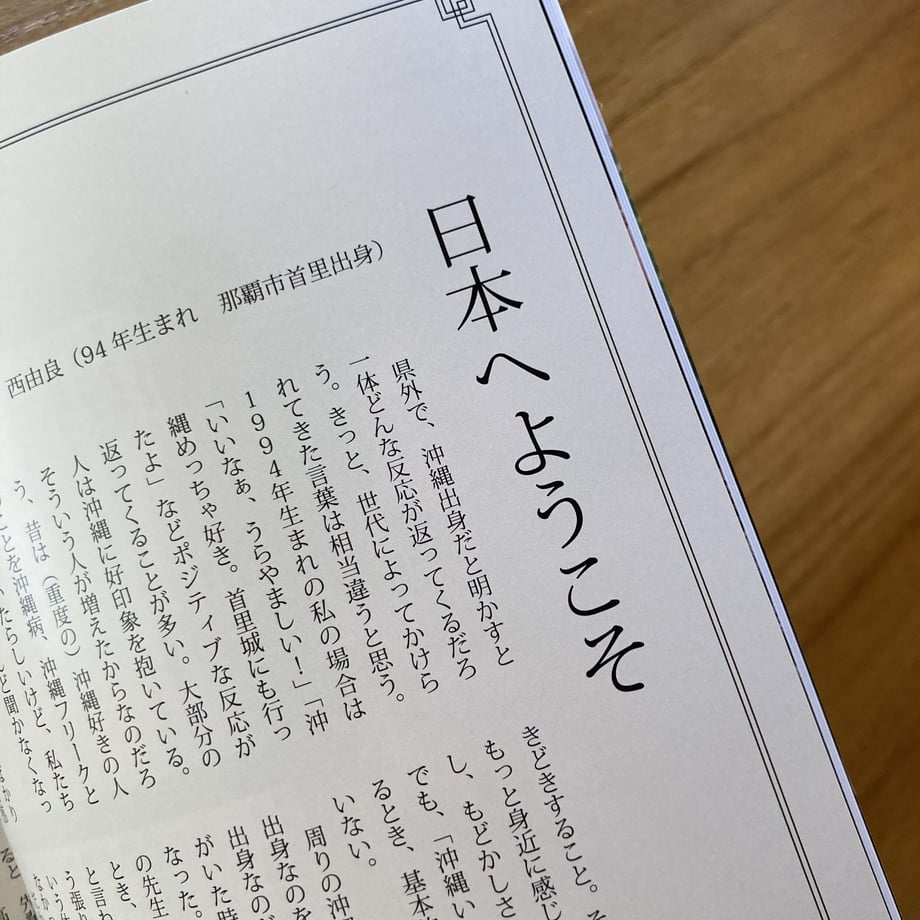 日本へようこそ
西由良（94年生まれ　那覇市首里出身）
県外で、沖縄出身だと明かすと
一体どんな反応が返ってくるだろ
う。きっと、世代によってかけら
れてきた言葉は相当違うと思う。
1994年生まれの私の場合は
「いいなぁ、うらやましい！」「沖
縄めっちゃ好き。首里城にも行っ
たよ」などポジティブな反応が
返ってくることが多い。大部分の
人は沖縄に好印象を抱いている。
そういう人が増えたからなのだろ
う、昔は（重度の）沖縄好きの人
のことを沖縄病、沖縄フリークと
たらしいけど、私たち
ど聞かなくなっ
ばかり
きどきすること。そ
もっと身近に感じ
し、もどかしさ
でも、「沖縄い
るとき、基本
いない。
周りの沖
出身なのを
出身なのだ
がいた時
なった。
の先生
とき、
と言わ
う張り
いう
なか